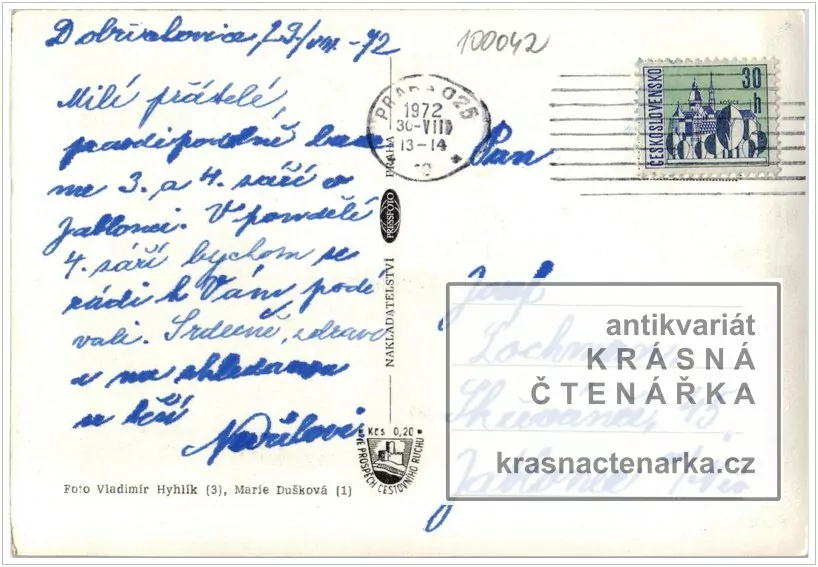 Dobřichovice 29/VIII. -72
100042
Milí přátelé,
pravděpodobně budeme
na 3. a 4. září v
Jablonci. V pondělí
4. září bychom se
rádi k Vám podí
vali. Srdečně zdraví
a na shledanou
se těší
PRAHA 025
1972
30-VIII
13-14
ČESKOSLOVENSKO
30 h
KOŠICE
Pan
Josef
Jablonec
antikvariát
KRÁSNÁ
ČTENÁŘKA
krasnactenarka.cz
NAKLADATELSTVÍ PRESSFOTO PRAHA
Kčs 0,20
VE PROSPĚCH CESTOVNÍHO RUCHU
Foto Vladimír Hyhlík (3), Marie Dušková (1)